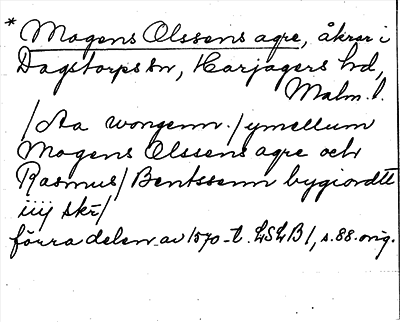 * Mogens Olssens agre, åkrar i
Dagstorps sn, Harjagers hd,
Malm. l.
/Aa wongenn./ ymellum
Mogens Olssens agre och
Rasmus/ Bentssenn bygiordtt
iiij skr/
förra delen av 1570-t. LSLB1, s. 88. orig.